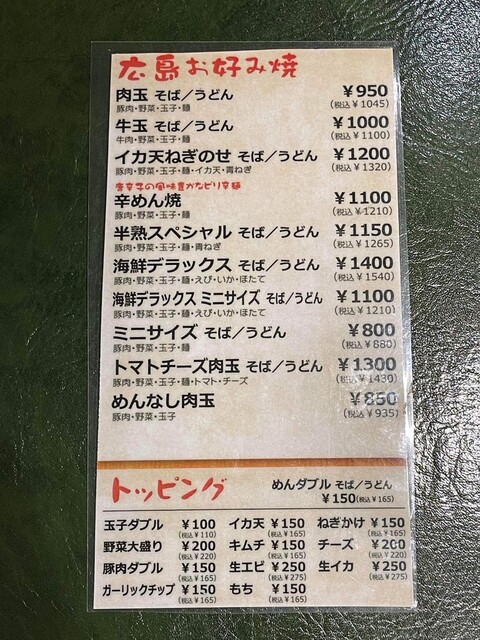 広島お好み焼
肉玉 そば／うどん ￥950
豚肉・野菜・玉子・麺 （税込￥1045）
牛玉 そば／うどん ￥1000
牛肉・野菜・玉子・麺 （税込￥1100）
イカ天ねぎのせ そば／うどん ￥1200
豚肉・野菜・玉子・麺・イカ天・青ねぎ （税込￥1320）
唐辛子の風味豊かなピリ辛麺
辛めん焼 ￥1100
豚肉・野菜・玉子・麺 （税込￥1210）
半熟スペシャル そば／うどん ￥1150
豚肉・野菜・玉子・麺・青ねぎ （税込￥1265）
海鮮デラックス そば／うどん ￥1400
豚肉・野菜・玉子・麺・えび・いか・ほたて （税込￥1540）
海鮮デラックス ミニサイズ そば／うどん ￥1100
豚肉・野菜・玉子・麺・えび・いか・ほたて （税込￥1210）
ミニサイズ そば／うどん ￥800
豚肉・野菜・玉子・麺 （税込￥880）
トマトチーズ肉玉 そば／うどん ￥1300
豚肉・野菜・玉子・麺・トマト・チーズ （税込￥1430）
めんなし肉玉 ￥850
豚肉・野菜・玉子 （税込￥935）
トッピング めんダブル そば／うどん
￥150（税込￥165）
玉子ダブル ￥100 イカ天 ￥150 ねぎかけ ￥150
（税込￥110） （税込￥165） （税込￥165）
野菜大盛り ￥200 キムチ ￥150 チーズ ￥200
（税込￥220） （税込￥165） （税込￥220）
豚肉ダブル ￥150 生エビ ￥250 生イカ ￥250
（税込￥165） （税込￥275） （税込￥275）
ガーリックチップ ￥150 もち ￥150
（税込￥165） （税込￥165）